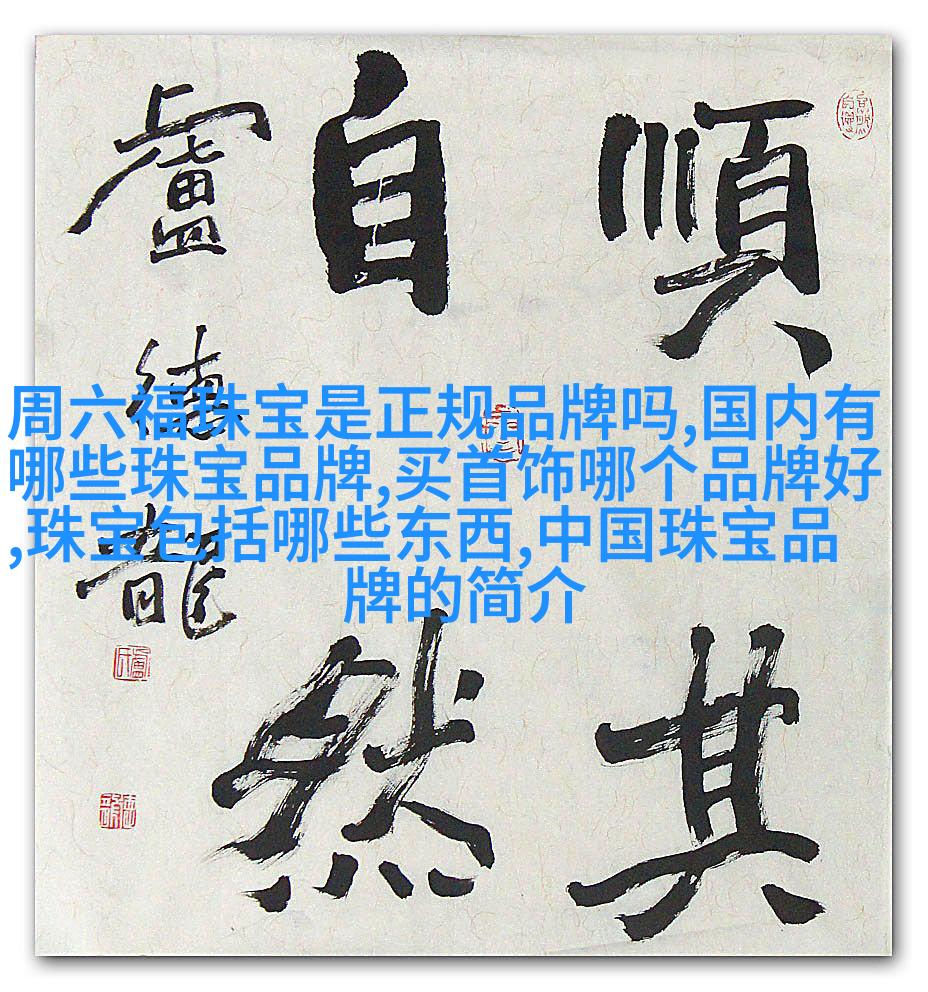 順其
自然
盧德龍
周六福珠宝是正规品牌吗,国内有
哪些珠宝品牌,买首饰哪个品牌好
,珠宝包括哪些东西,中国珠宝品
牌的简介